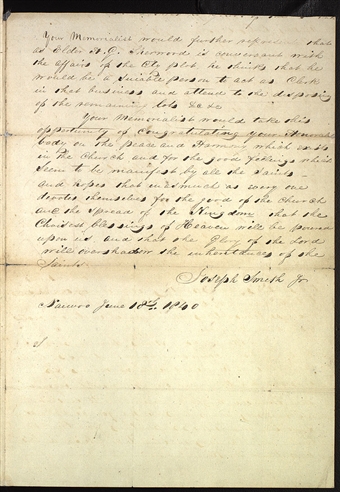 Your Memorialist would further represent that
as Elder H. C. Sherwood is conversant with
the affairs of the City plot, he thinks that he
would be a suitable person to act as Clerk
in that business and attend to the disposing
of the remaining lots &c &c
Your Memorialist would take this
opportunity of Congratulating your Honorable
body on the peace and Harmony which exists
in the Church and for the good feelings which
seem to be manifest by all the Saints
and hopes that inasmuch as every one
devotes themselves for the good of the Church
and the spread of the Kingdom that the
Choicest blessings of Heaven will be poured
upon us and that the Glory of the Lord
will overshadow the inheritances of the
Saints
Joseph Smith Jr
Nauvoo June 18th 1840